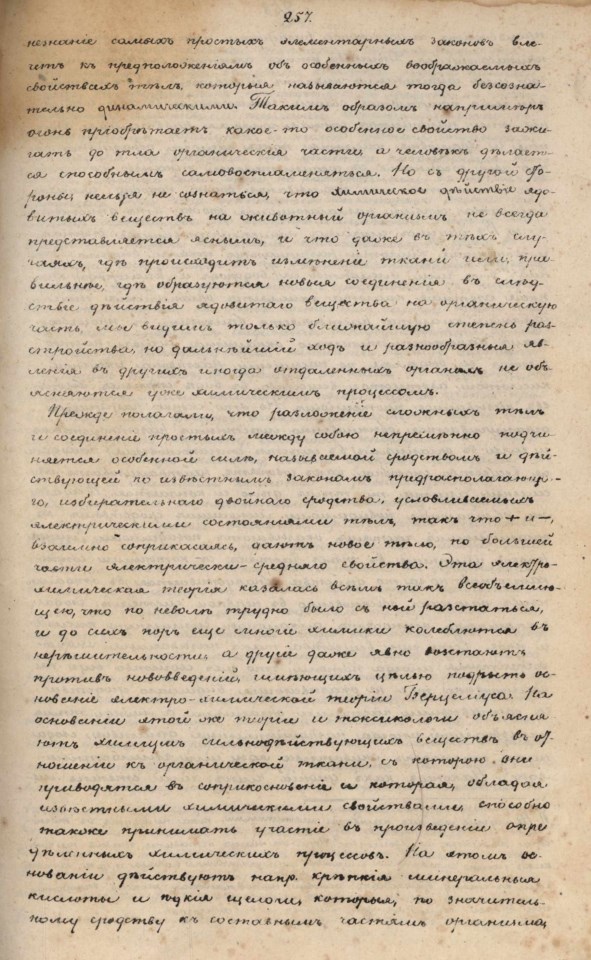 257.
незнаніе самыхъ простыхъ элементарныхъ законовъ вле-
четъ къ предположеніямъ объ особенныхъ воображаемыхъ
свойствахъ тѣлъ, которыя называются тогда безсозна-
тельно динамическими. Такимъ образомъ напримѣръ
огонь пріобрѣтаетъ какое-то особенное свойство зажи-
гать до тла органическія части, а человѣкъ дѣлает-
ся способнымъ самовоспламеняться. Но съ другой сто-
роны, нельзя не сознаться, что химическое дѣйствіе ядо-
витыхъ веществъ на животный организмъ не всегда
представляется яснымъ, и что даже въ тѣхъ слу-
чаяхъ, гдѣ происходитъ измѣненіе ткани или, пра-
вильнѣе, гдѣ образуются новыя соединенія въ слѣд-
ствіе дѣйствія ядовитаго вещества на органическую
часть, мы видимъ только ближайшую степень раз-
стройства, но дальнѣйшій ходъ и разнообразныя яв-
ленія въ другихъ иногда отдаленныхъ органахъ не объ-
ясняются уже химическимъ процессомъ.
Прежде полагали, что разложеніе сложныхъ тѣлъ
и соединеніе простыхъ между собою непремѣнно подчи-
няется особенной силѣ, называемой сродствомъ и дѣй-
ствующей по извѣстнымъ законамъ предрасполагающа-
го, избирательнаго двойнаго сродства, условливаемымъ
электрическими состояніями тѣлъ, такъ что + и -,
взаимно соприкасаясь, даютъ новое тѣло, по большей
части электрически-средняго свойства. Эта электро-
химическая теорія казалась всѣмъ такъ всеобъемлю-
щею, что по неволѣ трудно было съ ней разстаться,
и до сихъ поръ еще многіе химики колеблются въ
нерѣшительности, а другіе даже явно возстаютъ
противъ нововведеній, имѣющихъ цѣлью подрыть ос-
нованіе электро-химической теоріи Берцеліуса. На
основаніи этой же теоріи и токсикологи объясня-
ютъ химизмъ сильнодѣйствующихъ веществъ въ от-
ношеніи къ органической ткани, съ которою они
приводятся въ соприкосновеніе и которая, обладая
извѣстными химическими свойствами, способна
также принимать участіе въ произведеніи опре
дѣленныхъ химическихъ процессовъ. На этомъ ос-
нованіи дѣйствуютъ напр. крѣпкія минеральныя
кислоты и ѣдкія щелочи, которыя, по значитель-
ному сродству къ составнымъ частямъ организма,